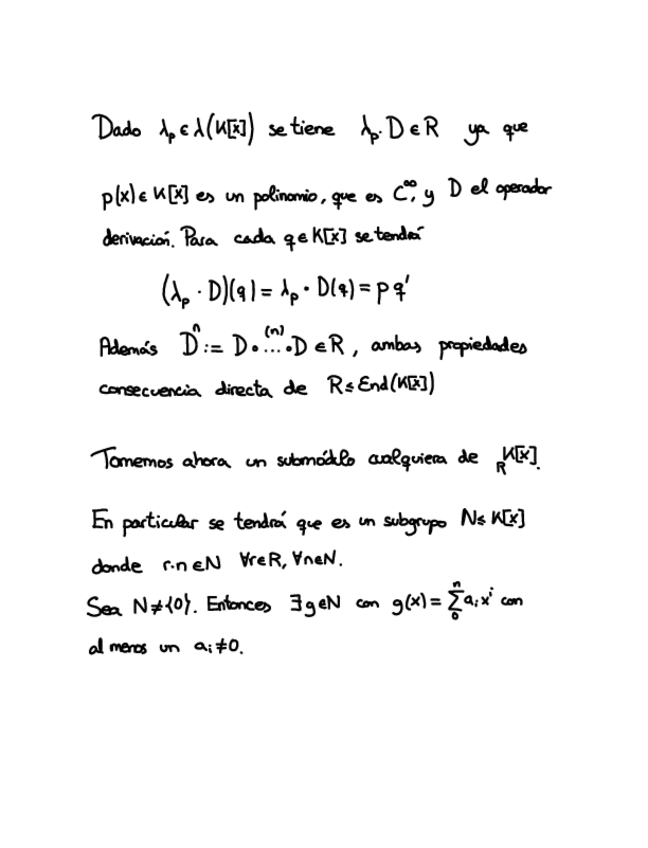 Dado λ_p ∈ λ(K[x]) se tiene λ_p · D ∈ R ya que
p(x) ∈ K[x] es un polinomio, que es C^∞, y D el operador
derivación. Para cada q ∈ K[x] se tendrá
(λ_p · D)(q) = λ_p · D(q) = p q'
Además D^n := D · (n)... · D ∈ R, ambas propiedades
consecuencia directa de R ≤ End(K[x])
Tomemos ahora un submódulo cualquiera de _R K[x].
En particular se tendrá que es un subgrupo N ≤ K[x]
donde r·n ∈ N ∀r ∈ R, ∀n ∈ N.
Sea N ≠ {0}. Entonces ∃ g ∈ N con g(x) = ∑_0^n a_i x^i con
al menos un a_i ≠ 0.